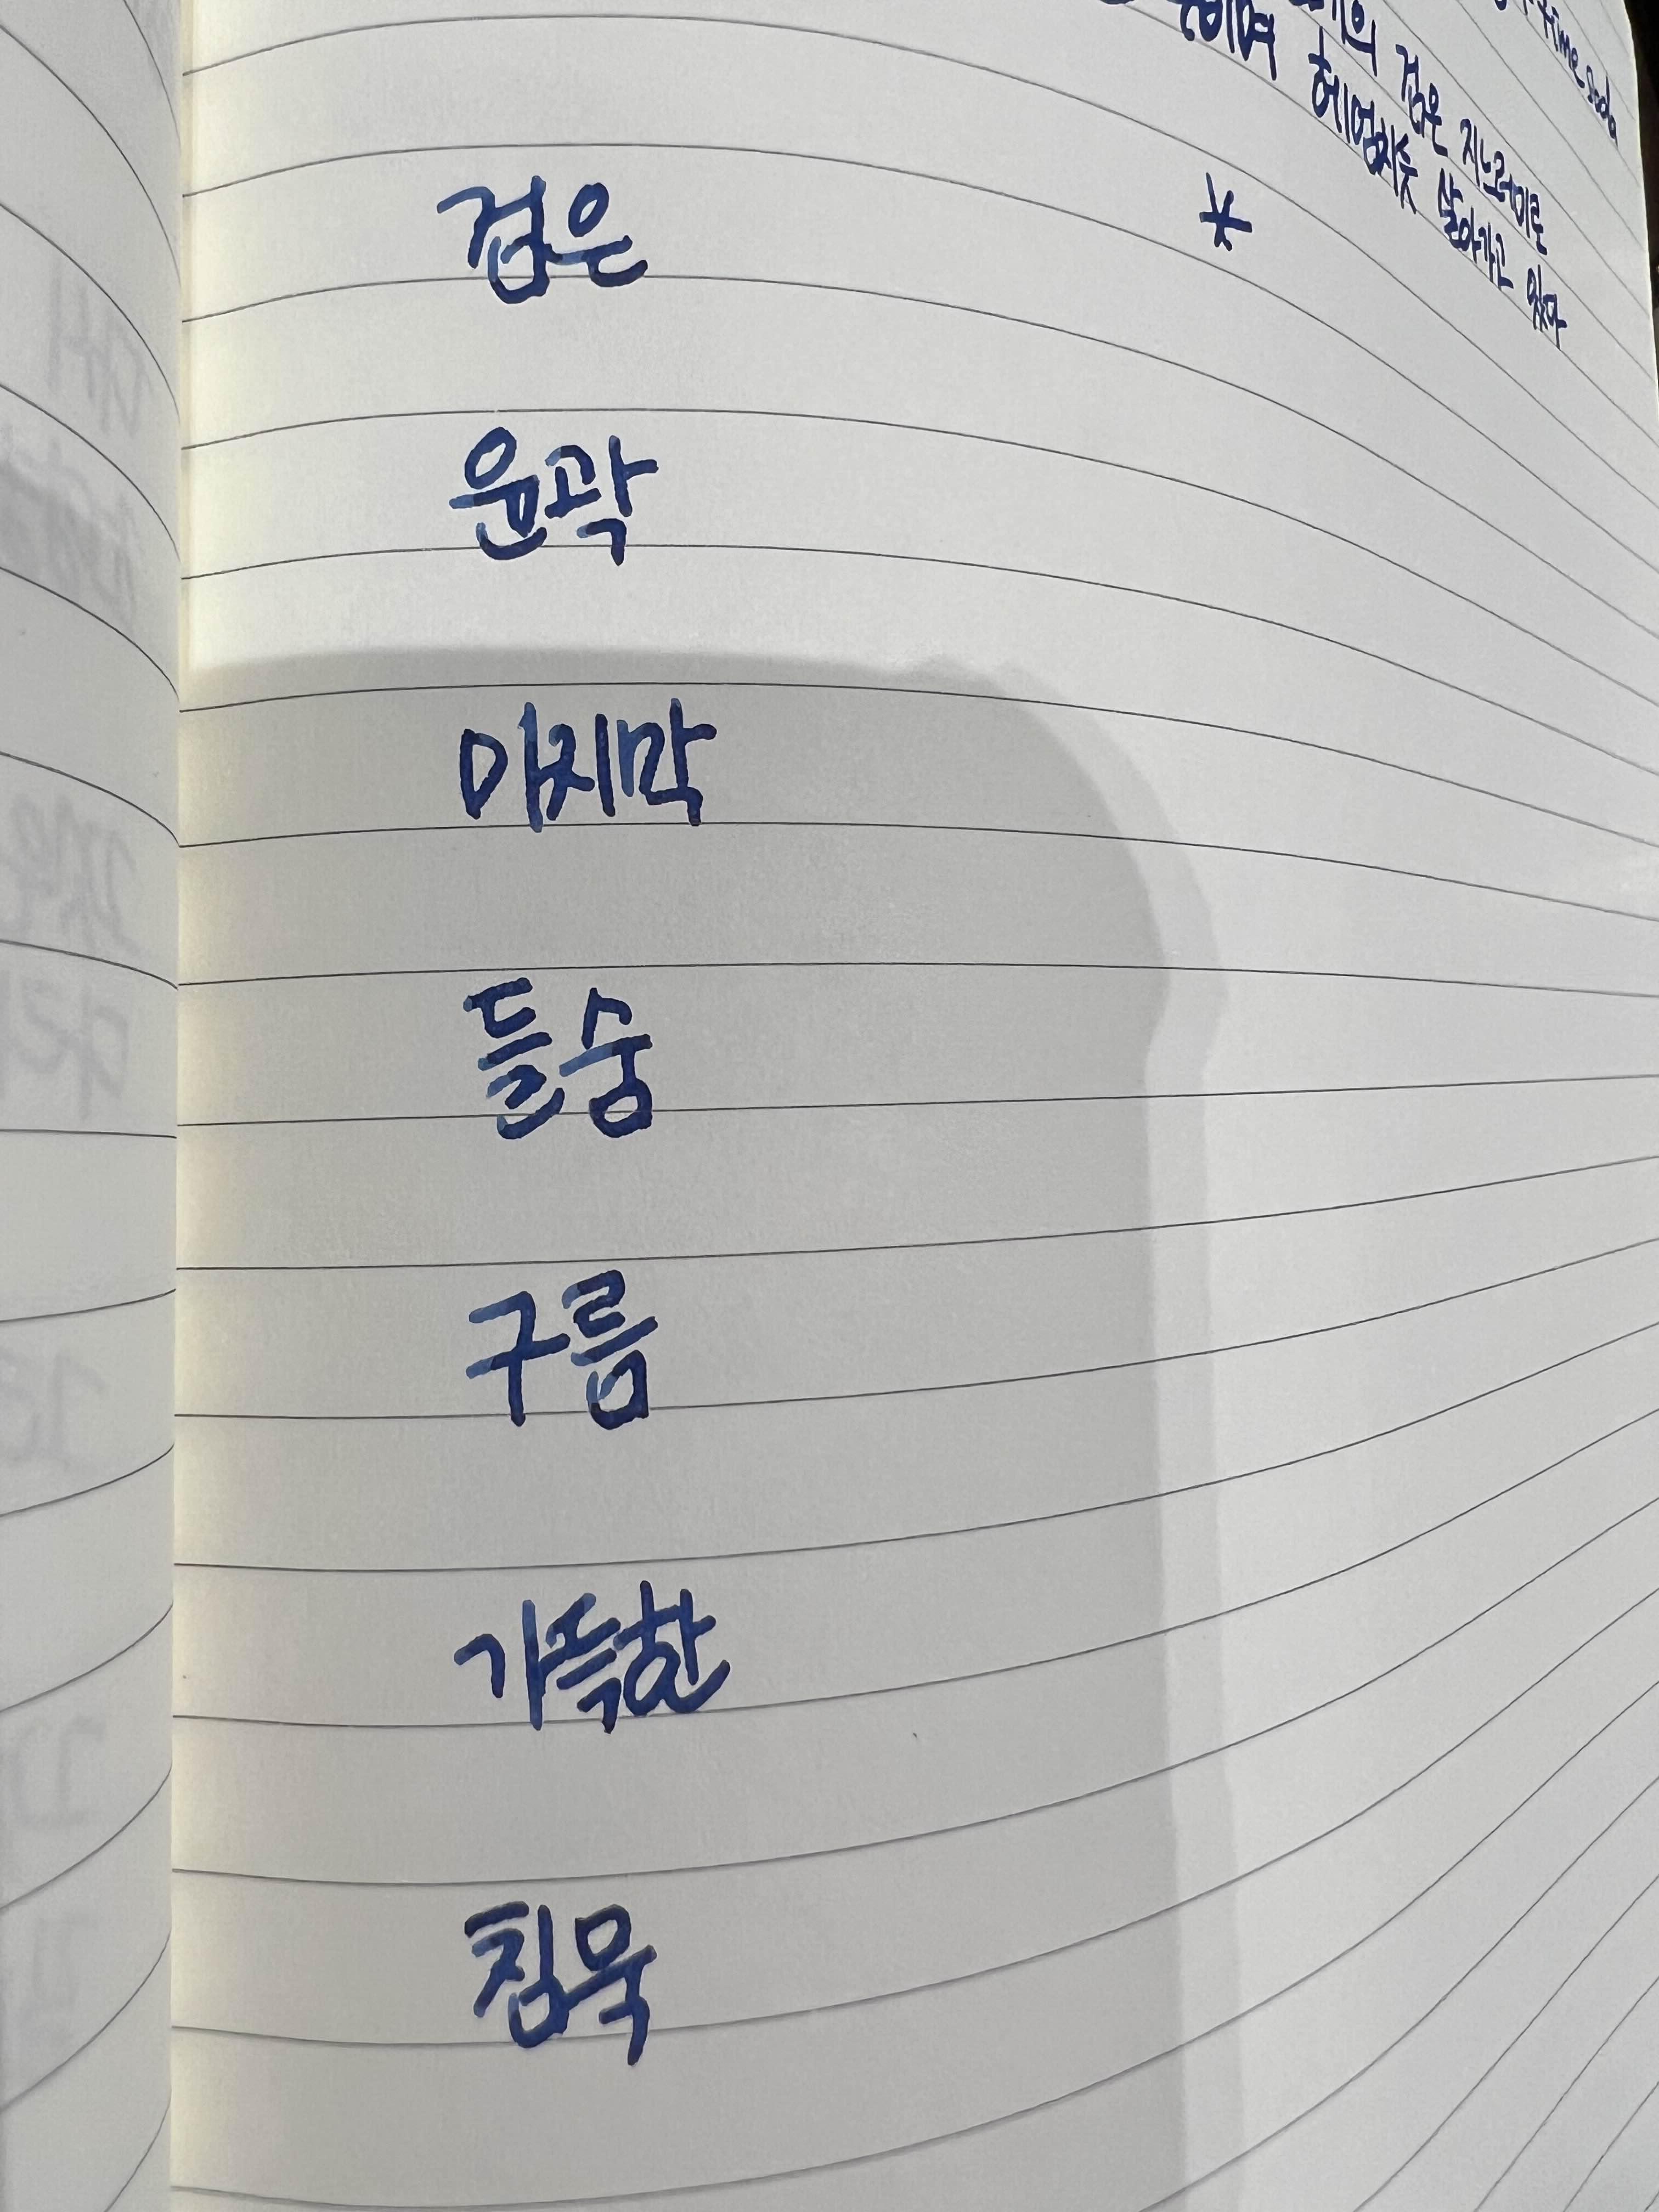 time soda
검은 지느러미로
헤엄치듯 살아가고 있다
*
검은
윤곽
마지막
들숨
구름
가득한
침묵